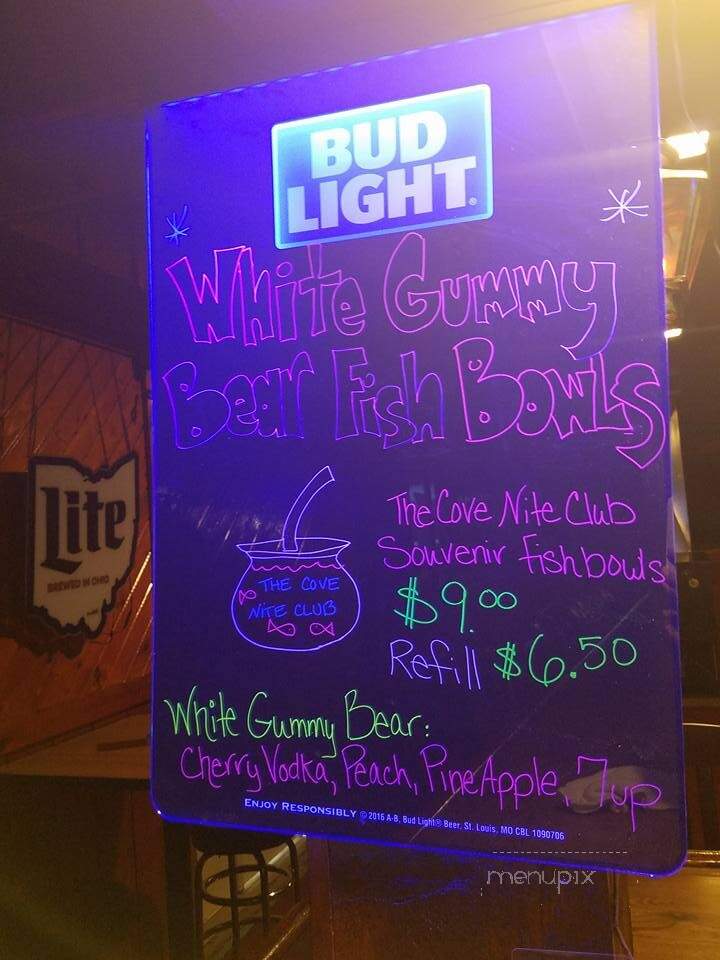 BUD
LIGHT
White Gummy
Bear Fish Bowls
The Cove Nite Club
Souvenir fishbowls
$9.00
Refill $6.50
THE COVE
NITE CLUB
White Gummy Bear:
Cherry Vodka, Peach, PineApple, 7up
ENJOY RESPONSIBLY © 2016 A-B, Bud Light® Beer, St. Louis, MO CBL 1090706
Lite
BREWED IN OHIO
menupix